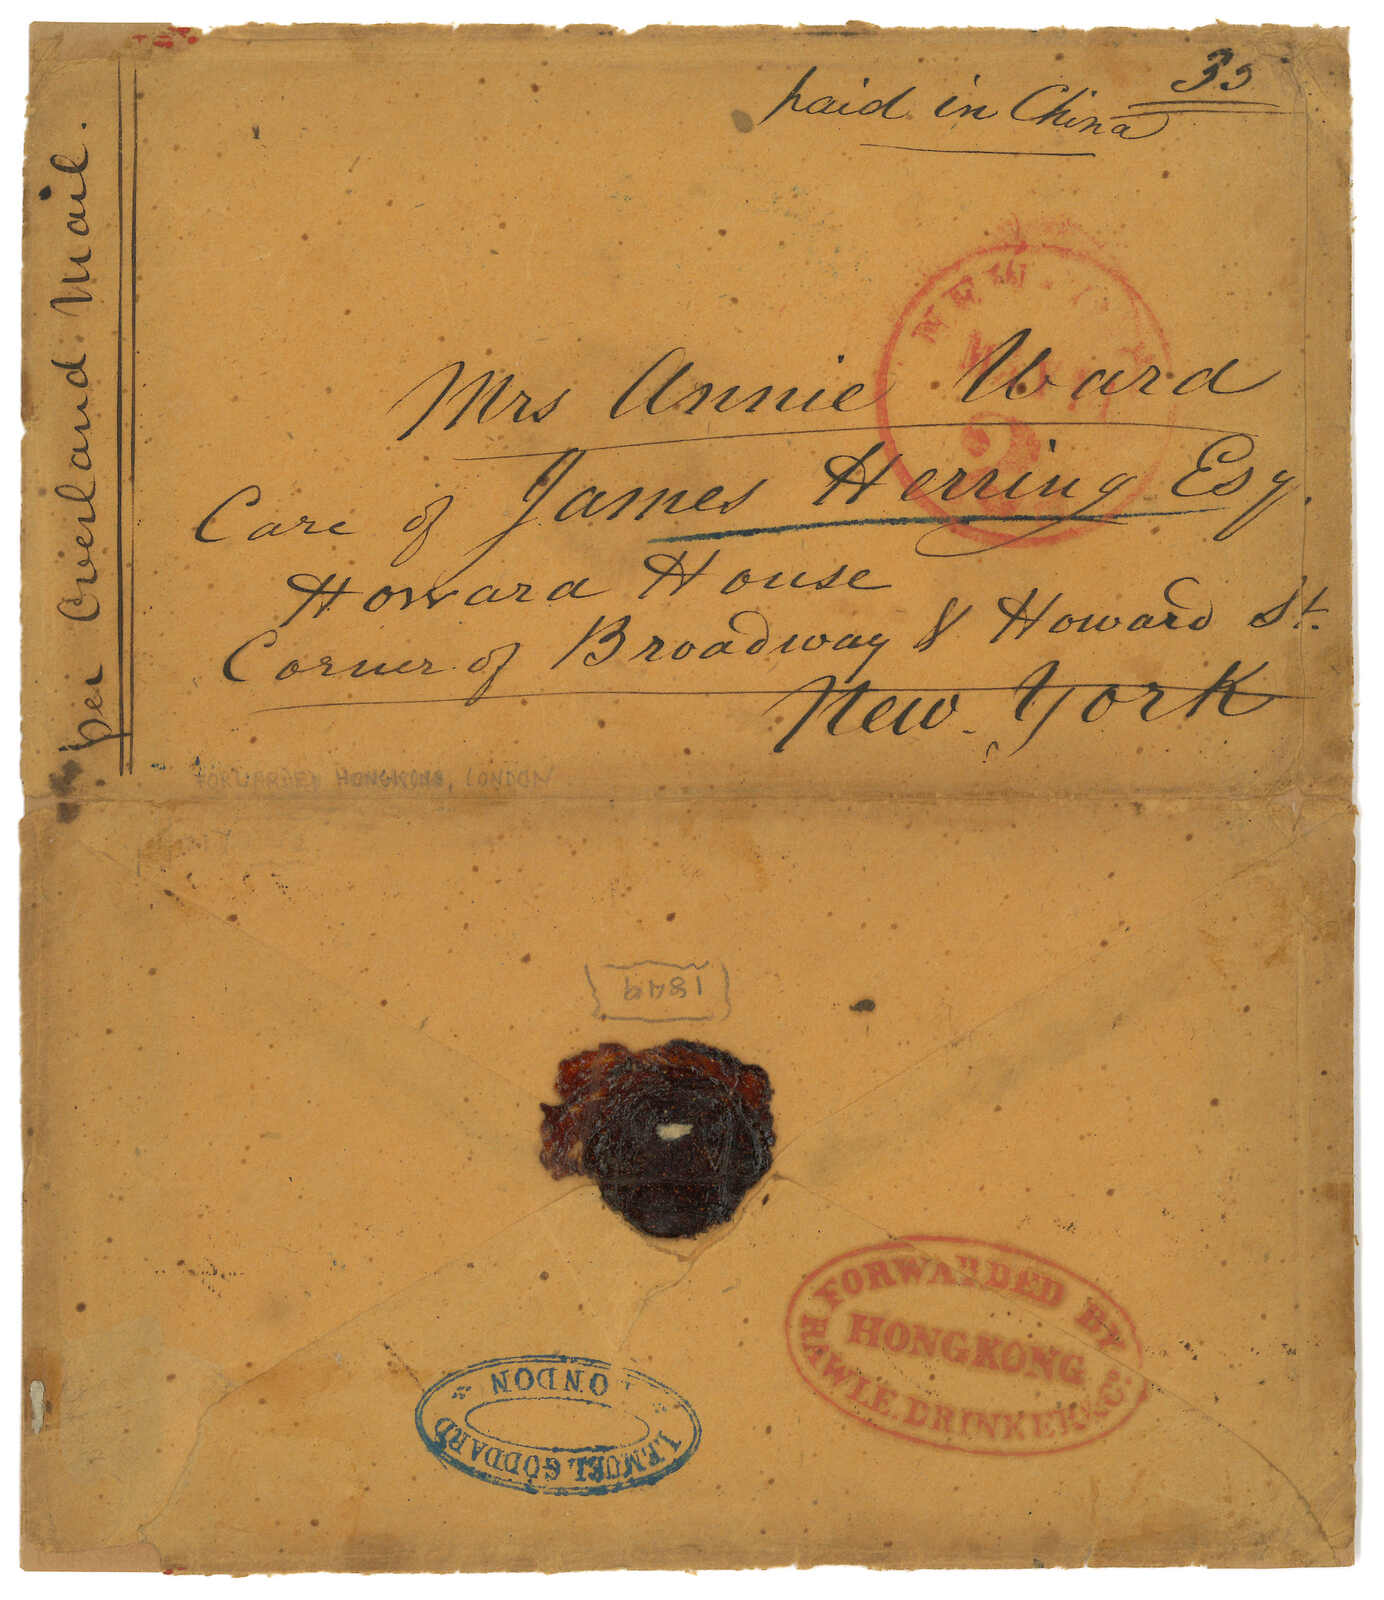 per Overland Mail.
35
paid in China
NEW YORK
2
Mrs Annie Ward
Care of James Herring Esq.
Howard House
Corner of Broadway & Howard St.
New York
FORWARDED HONGKONG, LONDON
1849
FORWARDED BY
HONGKONG
RAWLE, DRINKER & Co.
LEMUEL GODDARD
LONDON